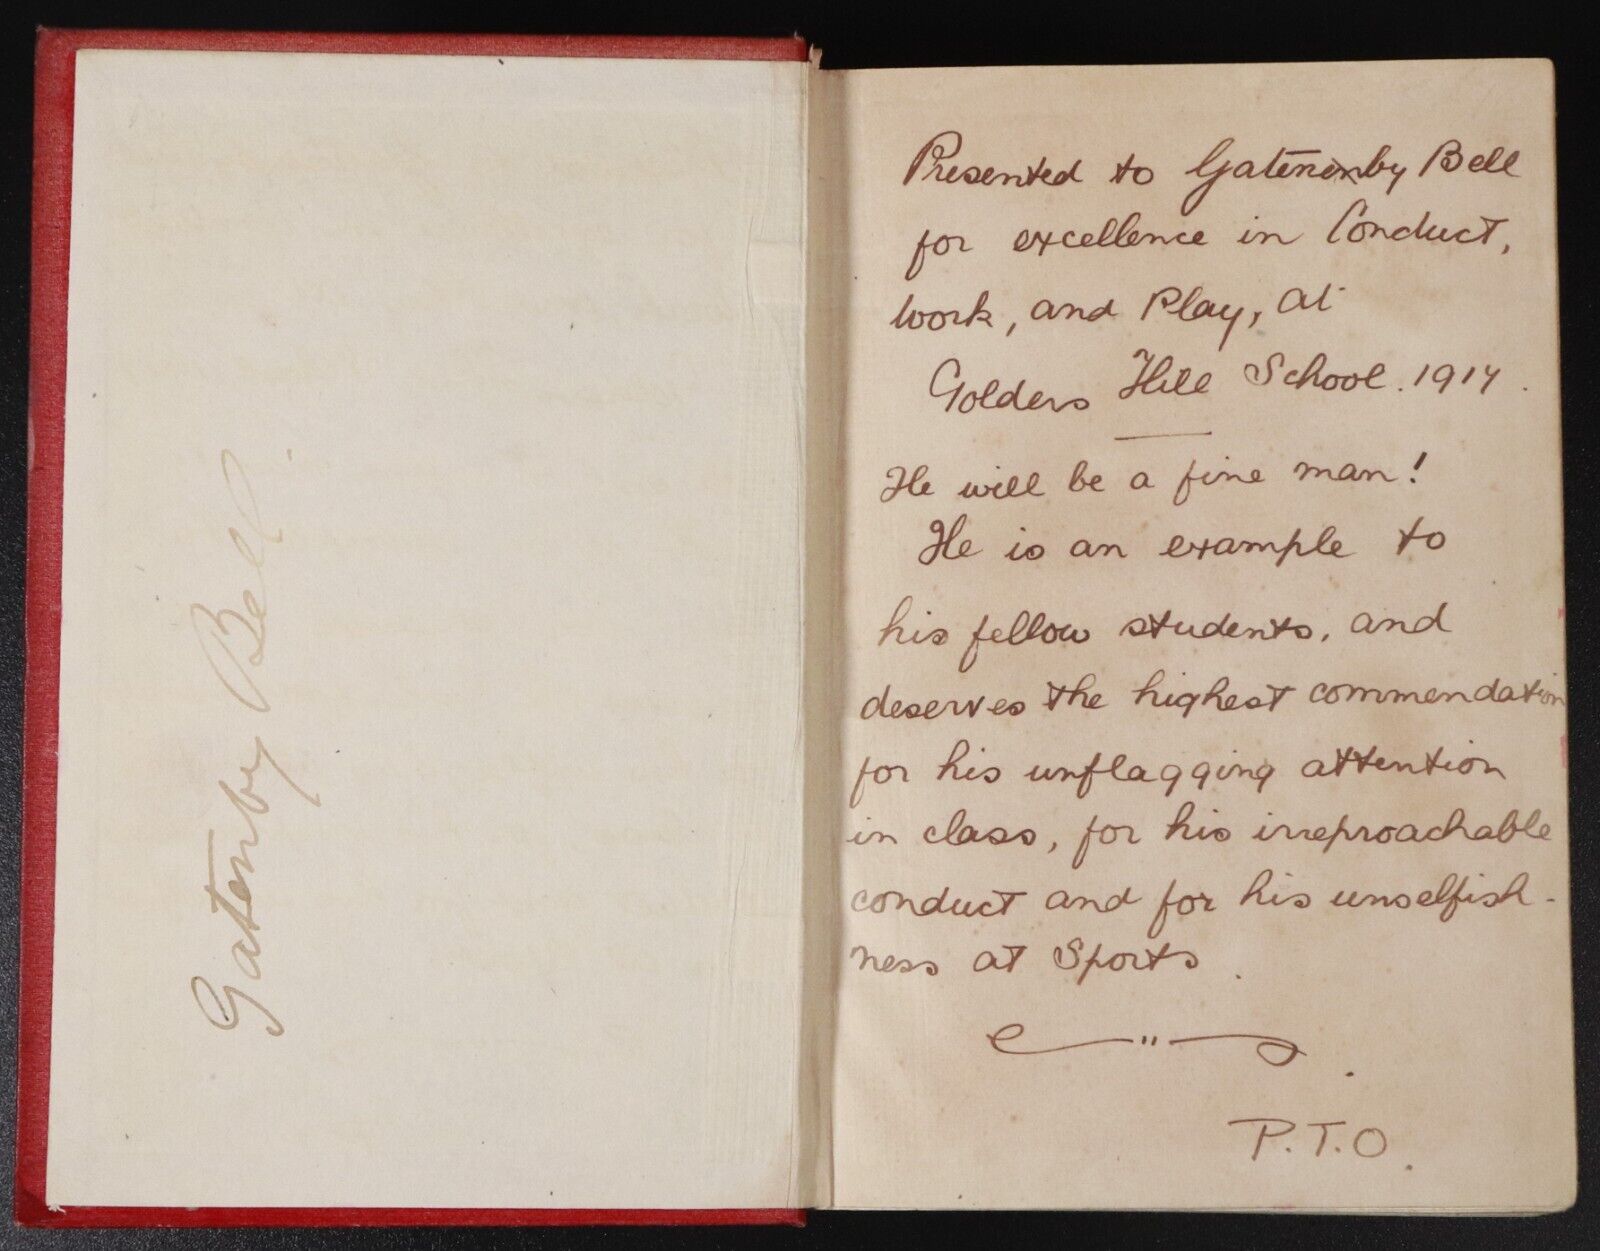 Gatenby Bell.
Presented to Gatenby Bell
for excellence in Conduct,
work, and Play, at
Golders Hill School. 1914.
He will be a fine man!
He is an example to
his fellow students, and
deserves the highest commendation
for his unflagging attention
in class, for his irreproachable
conduct and for his unselfish-
ness at Sports.
P.T.O.